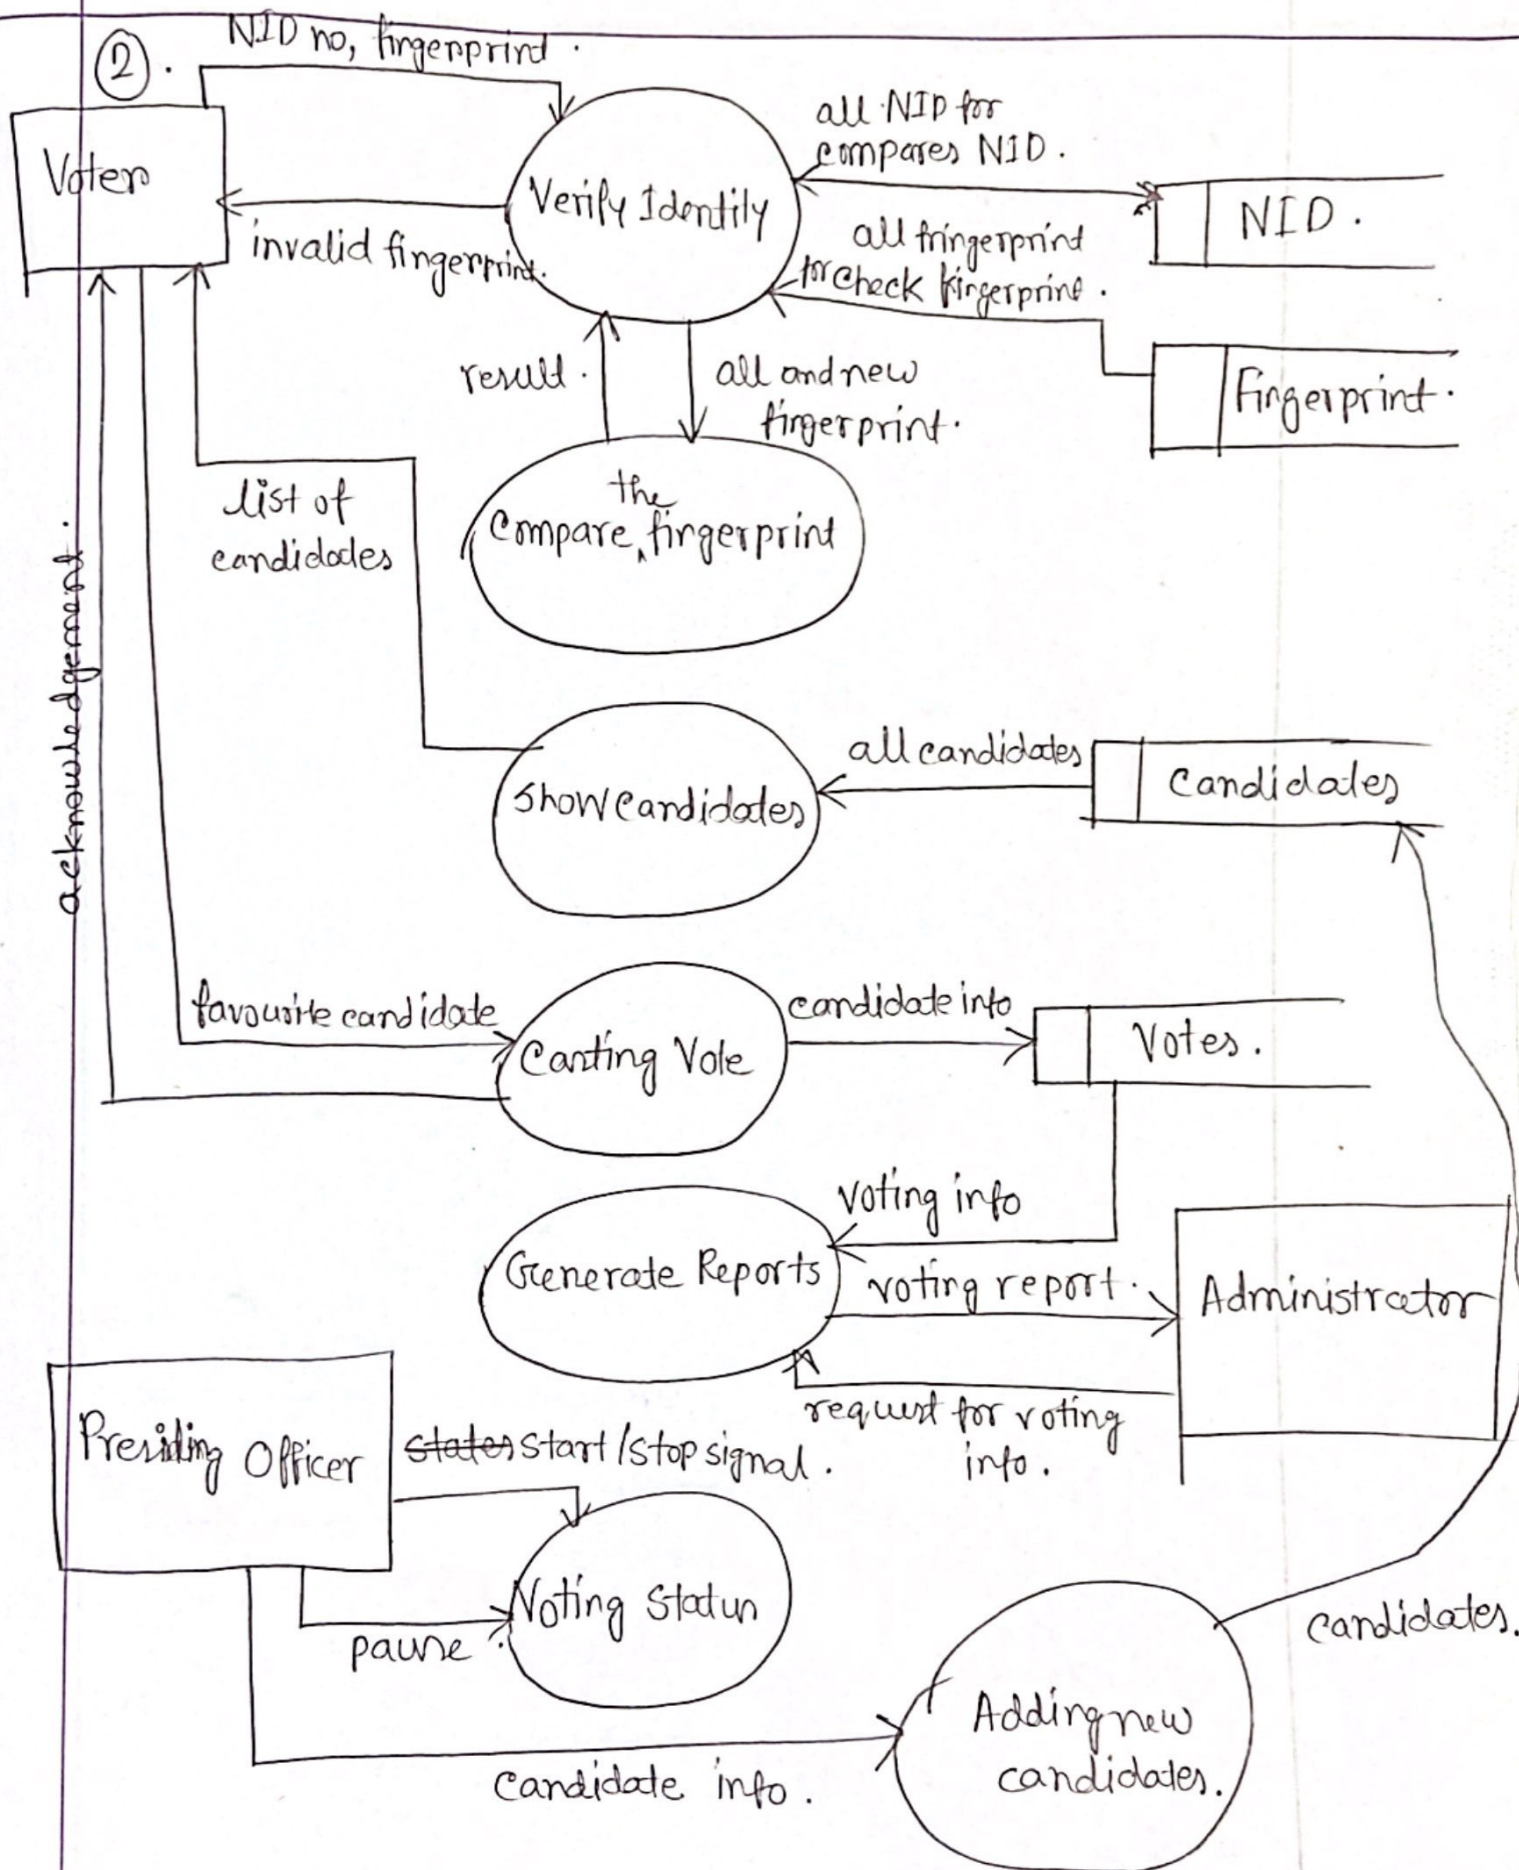 2.
NID no, fingerprint.
Voter
Verify Identity
all NID for
compares NID.
NID.
invalid fingerprint.
all fringerprint
for check fingerprint.
result.
all and new
fingerprint.
Fingerprint.
the
Compare fingerprint
list of
candidates
acknowledgement.
all candidates
Candidates
Show Candidates
favourite candidate
Casting Vote
candidate info
Votes.
voting info
Generate Reports
voting report.
Administrator
request for voting
info.
Presiding Officer
states start/stop signal.
Voting Status
pause.
candidates.
Adding new
candidates.
Candidate info.